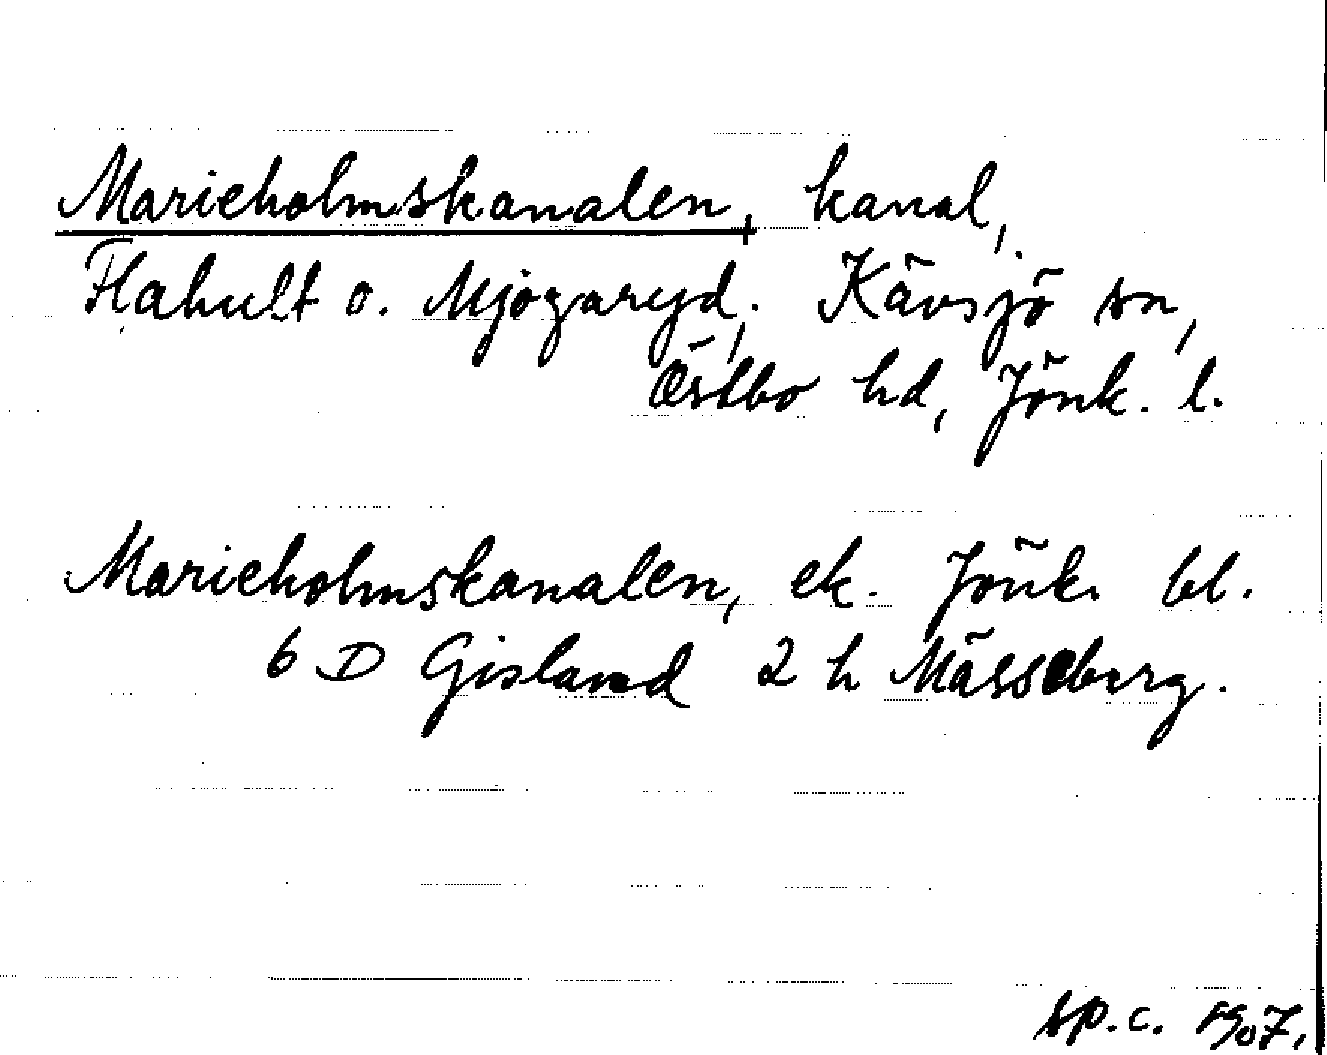 Marieholmskanalen, kanal,
Flahult o. Mjogaryd, Kävsjö sn,
Östbo hd, Jönk. l.
Marieholmskanalen, ek. Jönk. bl.
6 D Gislaved 2 h Mässeberg.
sp.c. 1907.